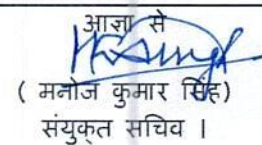 आज्ञा से
( मनोज कुमार सिंह)
संयुक्त सचिव ।